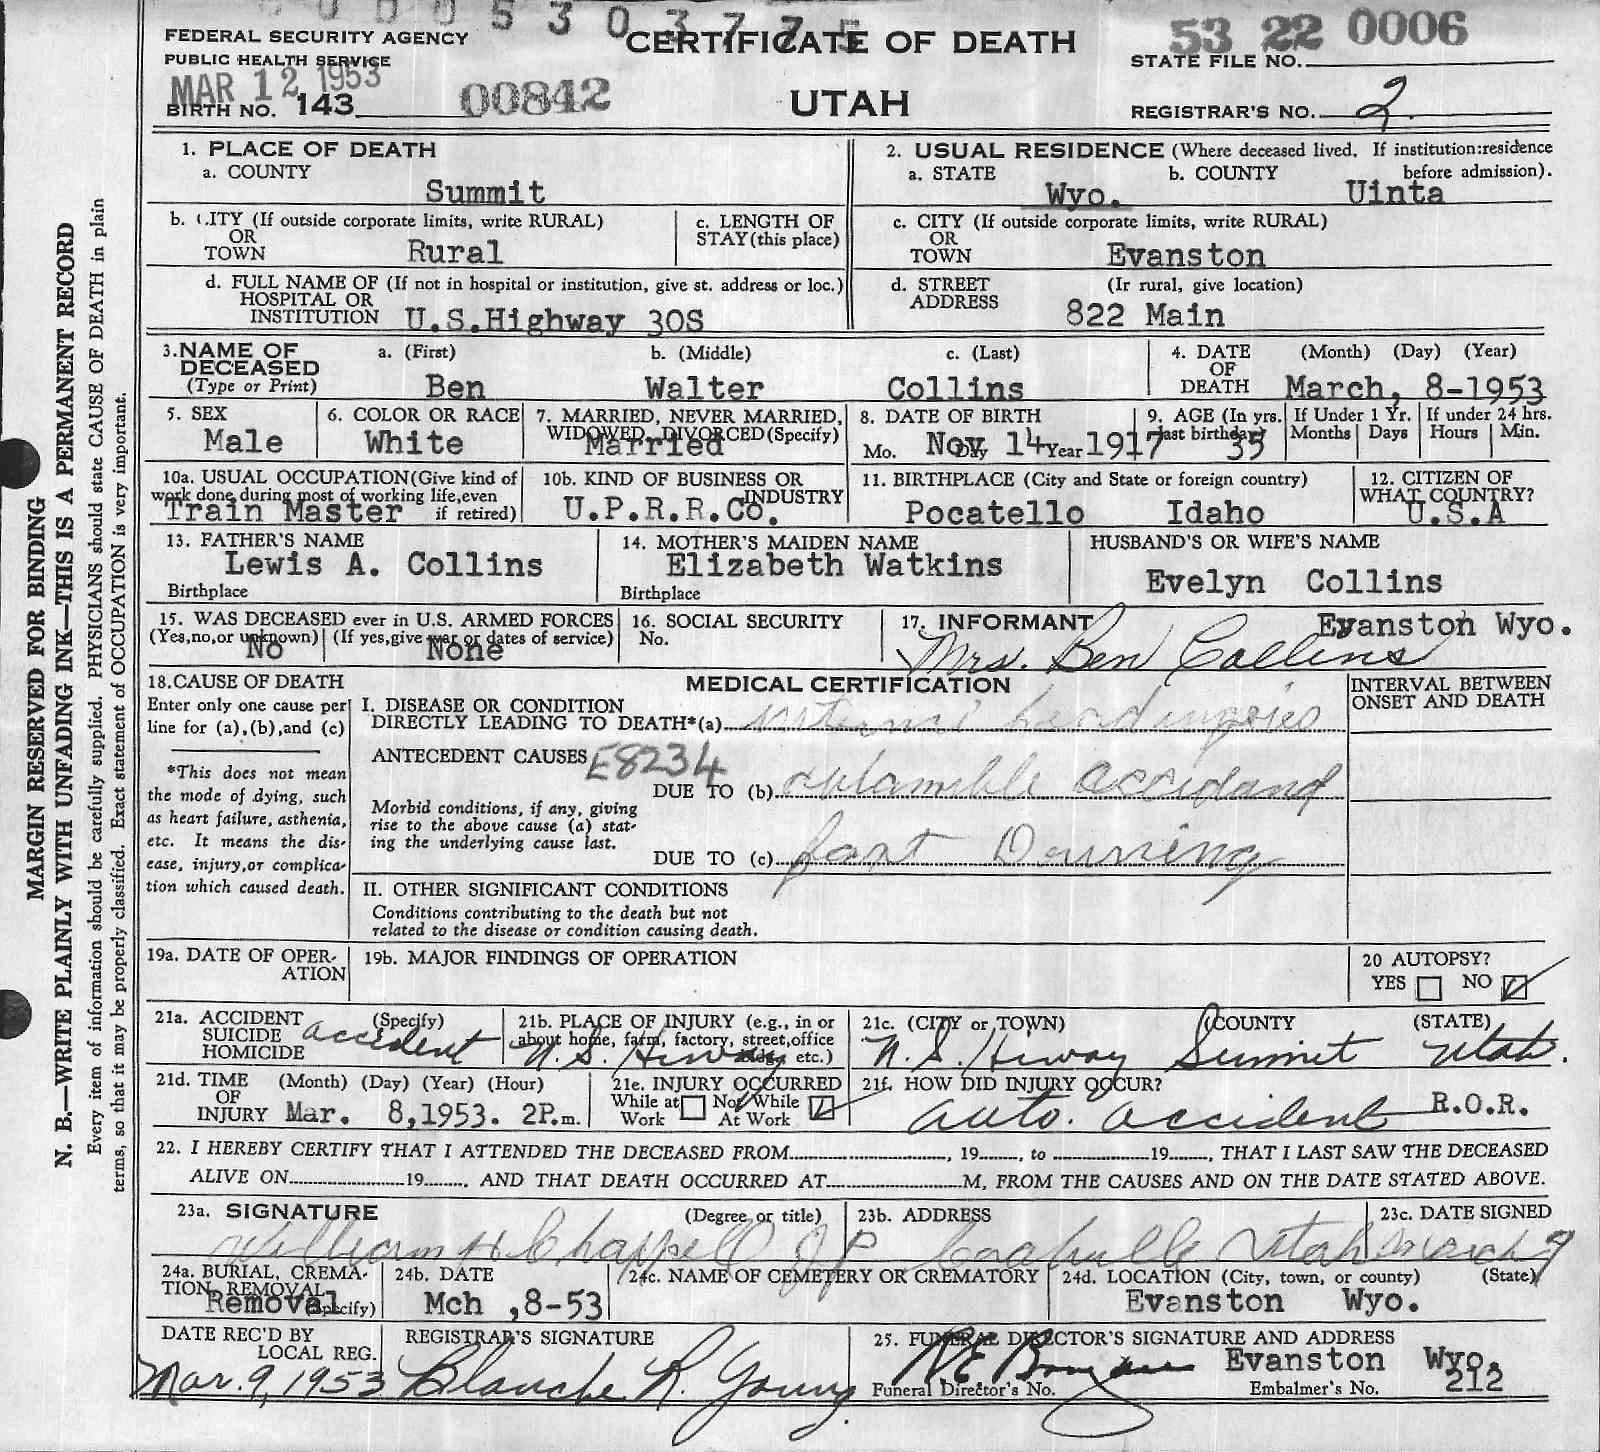 0 0 0 5 3 0 3 7 7 5
FEDERAL SECURITY AGENCY
PUBLIC HEALTH SERVICE
MAR 12 1953
BIRTH NO. 143
00842
CERTIFICATE OF DEATH
UTAH
53 22 0006
STATE FILE NO.
REGISTRAR'S NO. 2
MARGIN RESERVED FOR BINDING
N. B.—WRITE PLAINLY WITH UNFADING INK—THIS IS A PERMANENT RECORD
Every item of information should be carefully supplied. PHYSICIANS should state CAUSE OF DEATH in plain
terms, so that it may be properly classified. Exact statement of OCCUPATION is very important.
1. PLACE OF DEATH
a. COUNTY
Summit
2. USUAL RESIDENCE (Where deceased lived. If institution:residence
before admission).
a. STATE Wyo. b. COUNTY Uinta
b. CITY (If outside corporate limits, write RURAL)
OR
TOWN Rural
c. LENGTH OF
STAY(this place)
c. CITY (If outside corporate limits, write RURAL)
OR
TOWN Evanston
d. FULL NAME OF (If not in hospital or institution, give st. address or loc.)
HOSPITAL OR
INSTITUTION U.S.Highway 30S
d. STREET (Ir rural, give location)
ADDRESS 822 Main
3.NAME OF
DECEASED
(Type or Print)
a. (First) b. (Middle) c. (Last)
Ben Walter Collins
4. DATE (Month) (Day) (Year)
OF
DEATH March, 8-1953
5. SEX
Male
6. COLOR OR RACE
White
7. MARRIED, NEVER MARRIED,
WIDOWED, DIVORCED(Specify)
Married
8. DATE OF BIRTH
Mo. Nov Day 14 Year 1917
9. AGE (In yrs.
last birthday)
35
If Under 1 Yr.
Months Days
If under 24 hrs.
Hours Min.
10a. USUAL OCCUPATION(Give kind of
work done during most of working life,even
if retired)
Train Master
10b. KIND OF BUSINESS OR
INDUSTRY
U.P.R.R.Co.
11. BIRTHPLACE (City and State or foreign country)
Pocatello Idaho
12. CITIZEN OF
WHAT COUNTRY?
U.S.A
13. FATHER'S NAME
Lewis A. Collins
Birthplace
14. MOTHER'S MAIDEN NAME
Elizabeth Watkins
Birthplace
HUSBAND'S OR WIFE'S NAME
Evelyn Collins
15. WAS DECEASED ever in U.S. ARMED FORCES
(Yes,no,or unknown) (If yes,give war or dates of service)
No None
16. SOCIAL SECURITY
No.
17. INFORMANT Evanston Wyo.
Mrs. Ben Collins
18.CAUSE OF DEATH
Enter only one cause per
line for (a),(b),and (c)
*This does not mean
the mode of dying, such
as heart failure, asthenia,
etc. It means the dis-
ease, injury,or complica-
tion which caused death.
MEDICAL CERTIFICATION
I. DISEASE OR CONDITION
DIRECTLY LEADING TO DEATH*(a)
ANTECEDENT CAUSES E8234
DUE TO (b)
Morbid conditions, if any, giving
rise to the above cause (a) stat-
ing the underlying cause last.
DUE TO (c)
II. OTHER SIGNIFICANT CONDITIONS
Conditions contributing to the death but not
related to the disease or condition causing death.
INTERVAL BETWEEN
ONSET AND DEATH
19a. DATE OF OPER-
ATION
19b. MAJOR FINDINGS OF OPERATION
20 AUTOPSY?
YES NO
21a. ACCIDENT (Specify)
SUICIDE
HOMICIDE
accident
21b. PLACE OF INJURY (e.g., in or
about home, farm, factory, street,office
bldg. etc.)
U.S. Hiway
21c. (CITY or TOWN) (COUNTY (STATE)
U.S. Hiway Summit Utah.
21d. TIME (Month) (Day) (Year) (Hour)
OF
INJURY Mar. 8,1953. 2P.m.
21e. INJURY OCCURRED
While at Not While
Work At Work
21f. HOW DID INJURY OCCUR?
auto. accident R.O.R.
22. I HEREBY CERTIFY THAT I ATTENDED THE DECEASED FROM , 19 , to 19 , THAT I LAST SAW THE DECEASED
ALIVE ON 19 , AND THAT DEATH OCCURRED AT M, FROM THE CAUSES AND ON THE DATE STATED ABOVE.
23a. SIGNATURE (Degree or title)
William H Chappell J P
23b. ADDRESS
Coalville Utah
23c. DATE SIGNED
March 9
24a. BURIAL, CREMA-
TION, REMOVAL
(Specify)
Removal
24b. DATE
Mch ,8-53
24c. NAME OF CEMETERY OR CREMATORY
24d. LOCATION (City, town, or county) (State)
Evanston Wyo.
DATE REC'D BY
LOCAL REG.
Mar. 9, 1953
REGISTRAR'S SIGNATURE
Blanche R. Young
25. FUNERAL DIRECTOR'S SIGNATURE AND ADDRESS
Evanston Wyo.
Funeral Director's No. Embalmer's No. 212